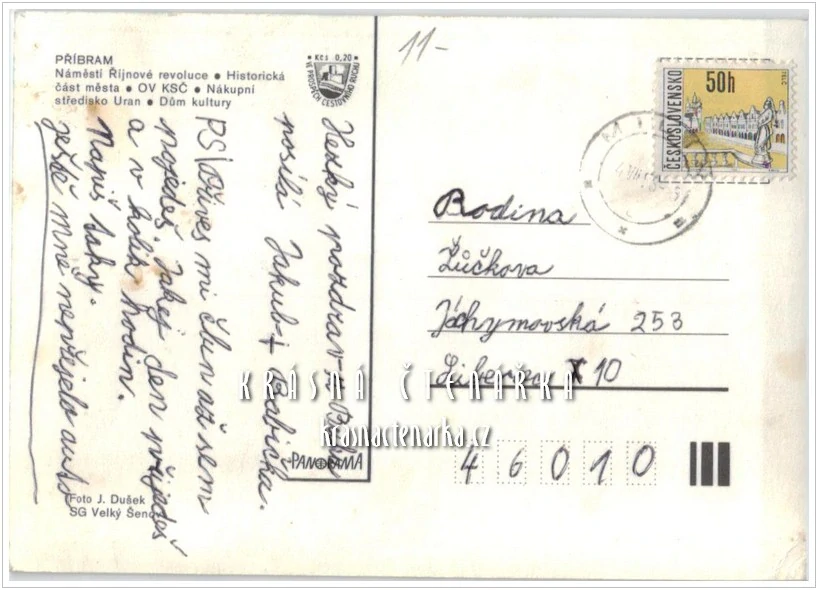 PŘÍBRAM
Náměstí Říjnové revoluce ● Historická
část města ● OV KSČ ● Nákupní
středisko Uran ● Dům kultury
Kčs 0,20
VE PROSPĚCH CESTOVNÍHO RUCHU
Hezký pozdrav z
posílá Jakub + Babička.
PS\ Přives mi člun až sem
pojedeš jakej den přijedeš
a v kolik hodin.
Napiš taky.
ještě mne nepřejelo auto
Foto J. Dušek
SG Velký Šenov
PANORAMA
11-
ČESKOSLOVENSKO
50h
Rodina
Žůčkova
Jáchymovská 253
Liberec 10
46010
KRÁSNÁ ČTENÁŘKA
krasnactenarka.cz